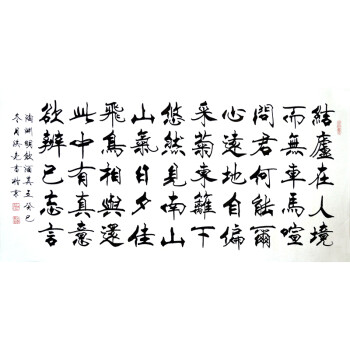 結廬在人境
而無車馬喧
問君何能爾
心遠地自偏
采菊東籬下
悠然見南山
山氣日夕佳
飛鳥相與還
此中有真意
欲辨已忘言
陶淵明飲酒其五癸巳
冬月書於京